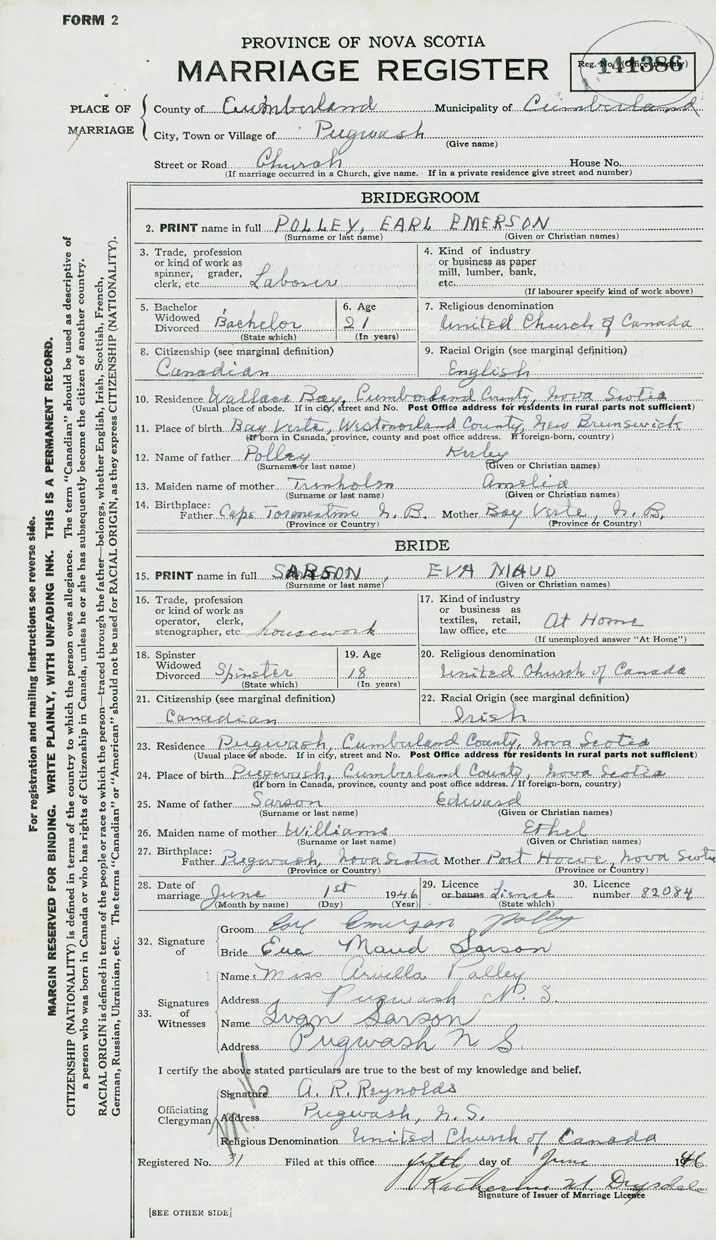 FORM 2
PROVINCE OF NOVA SCOTIA
MARRIAGE REGISTER
Reg. No. (Office use only)
141386
PLACE OF MARRIAGE
County of Cumberland Municipality of Cumberland
City, Town or Village of Pugwash
(Give name)
Street or Road Church House No.
(If marriage occurred in a Church, give name. If in a private residence give street and number)
BRIDEGROOM
2. PRINT name in full POLLEY, EARL EMERSON
(Surname or last name) (Given or Christian names)
3. Trade, profession or kind of work as spinner, grader, clerk, etc. Laborer
4. Kind of industry or business as paper mill, lumber, bank, etc.
(If labourer specify kind of work above)
5. Bachelor Widowed Divorced Bachelor
(State which)
6. Age 21
(In years)
7. Religious denomination
United Church of Canada
8. Citizenship (see marginal definition)
Canadian
9. Racial Origin (see marginal definition)
English
10. Residence Wallace Bay, Cumberland County, Nova Scotia
(Usual place of abode. If in city, street and No. Post Office address for residents in rural parts not sufficient)
11. Place of birth Bay Verte, Westmorland County, New Brunswick
(If born in Canada, province, county and post office address. If foreign-born, country)
12. Name of father Polley
(Surname or last name) (Given or Christian names)
13. Maiden name of mother Trenholm Amelia
(Surname or last name) (Given or Christian names)
14. Birthplace: Father Cape Tormentine N. B. Mother Bay Verte, N. B.
(Province or Country) (Province or Country)
BRIDE
15. PRINT name in full SARSON, EVA MAUD
(Surname or last name) (Given or Christian names)
16. Trade, profession or kind of work as operator, clerk, stenographer, etc. housework
17. Kind of industry or business as textiles, retail, law office, etc. At Home
(If unemployed answer "At Home")
18. Spinster Widowed Divorced Spinster
(State which)
19. Age 18
(In years)
20. Religious denomination
United Church of Canada
21. Citizenship (see marginal definition)
Canadian
22. Racial Origin (see marginal definition)
Irish
23. Residence Pugwash, Cumberland County, Nova Scotia
(Usual place of abode. If in city, street and No. Post Office address for residents in rural parts not sufficient)
24. Place of birth Pugwash, Cumberland County, Nova Scotia
(If born in Canada, province, county and post office address. If foreign-born, country)
25. Name of father Sarson Edward
(Surname or last name) (Given or Christian names)
26. Maiden name of mother Williams Ethel
(Surname or last name) (Given or Christian names)
27. Birthplace: Father Pugwash, Nova Scotia Mother Port Howe, Nova Scotia
(Province or Country) (Province or Country)
28. Date of marriage June 1st 1946
(Month by name) (Day) (Year)
29. Licence or banns
(State which)
30. Licence number 82084
32. Signature of
Groom Earl Emerson Polley
Bride Eva Maud Sarson
33. Signatures of Witnesses
Name Miss Arvella Polley
Address Pugwash N. S.
Name Ivan Sarson
Address Pugwash N S.
I certify the above stated particulars are true to the best of my knowledge and belief.
Officiating Clergyman
Signature A. R. Reynolds
Address Pugwash, N. S.
Religious Denomination United Church of Canada
Registered No. 31 Filed at this office fifth day of June 1946
Katherine M. Drysdale
Signature of Issuer of Marriage Licence
[SEE OTHER SIDE]
For registration and mailing instructions see reverse side.
MARGIN RESERVED FOR BINDING. WRITE PLAINLY, WITH UNFADING INK. THIS IS A PERMANENT RECORD.
CITIZENSHIP (NATIONALITY) is defined in terms of the country to which the person owes allegiance. The term "Canadian" should be used as descriptive of
a person who was born in Canada or who has rights of Citizenship in Canada, unless he or she has subsequently become the citizen of another country.
RACIAL ORIGIN is defined in terms of the people or race to which the person—traced through the father—belongs, whether English, Irish, Scottish, French,
German, Russian, Ukrainian, etc. The terms "Canadian" or "American" should not be used for RACIAL ORIGIN, as they express CITIZENSHIP (NATIONALITY).